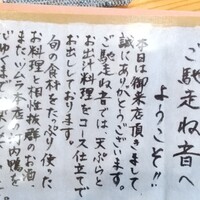 ご馳走ね音へ
ようこそ!!
本日は御来店頂きまして
誠にありがとうございます。
ご馳走ね音では、天ぷらと
お出汁料理をコース仕立てで
お出ししております。
旬の食材をたっぷり使った
お料理と相性抜群のお酒、
またツムラ本店の河内鴨を